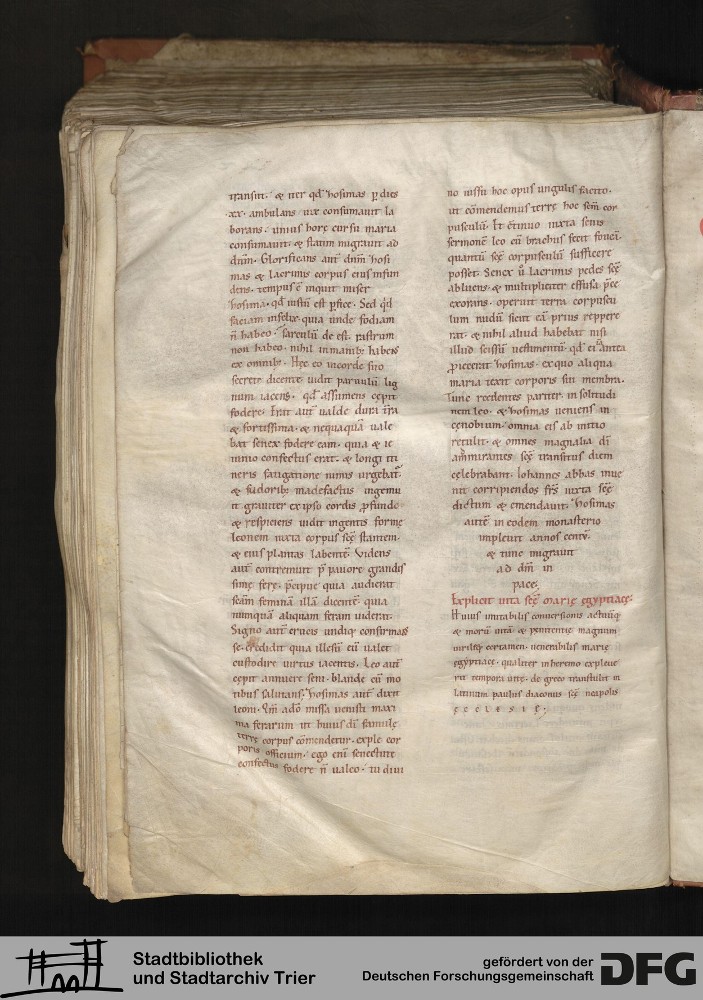 transiit. & iter qđ ħosimas p̱ dies
.xx. ambulans uix consumauit la
borans. unius horę cursu maria
consumauit. & statim migrauit ad
dn̄m. Glorificans aut̄ dn̄m ħosi
mas & lacrimis corpus eius infun
dens. tempus ē inquit miser
ħosima. qđ iussū est ꝑfice. Sed qd̄
faciam infelix. quia unde fodiam
n̄ habeo. sarculū de est. rastrum
non habeo. nihil in manibꝫ habens
ex omnibꝫ. Hęc eo in corde suo
secrete dicente uidit paruulū lig
num iacens. qđ assumens cępit
fodere. Erat aut̄ ualde dura tr̄ra
& fortissima. & nequaquā uale
bat senex fodere eam. quia & ie
iunio confectus erat. & longi iti
neris fatigatione nimis urgebat᷑.
& sudoribꝫ madefactus ingemu
it grauiter ex ipso cordis ꝓfundo
& respiciens uidit ingentis formę
leonem iuxta corpus sc̄ę stantem.
& eius plantas labentē. Videns
aut̄ contremuit p̄ pauore grandis
simę ferę. p̄cipue quia audierat
sc̄am feminā illā dicentē. quia
nunquā aliquam feram uiderat.
Signo aut̄ crucis undiqꝫ confirmans
se. credidit quia illesū eū ualet
custodire uirtus iacentis. Leo aut̄
cępit annuere seni. blande eū mo
tibus salutans. ħosimas aut̄ dixit
leoni. Qm̄ ad hoc missa uenisti maxi
ma ferarum ut huius dī famulę
terrę corpus cōmendetur. exple cor
poris officium. ego enī senectute
confectus fodere n̄ ualeo. tu diui
no iussu hoc opus ungulis facito.
ut cōmendemus terrę hoc sc̄m cor
pusculū. Et c̄tinuo iuxta senis
sermonē leo cū brachiis fecit foueā.
quantū sc̄ę corpusculū sufficere
posset. Senex ū lacrimis pedes sc̄ę
abluens. & multipliciter effusa p̄ce
exorans. operuit terra corpuscu
lum nudū sicut eā prius reppere
rat. & nihil aliud habebat nisi
illud scissū uestimentū. qđ ei antea
ꝓiecerat ħosimas. ex quo aliqua
maria texit corporis sui membra.
Tunc recedentes pariter. in solitudi
nem leo. & ħosimas ueniens in
cęnobium. omnia eis ab initio
retulit. & omnes magnalia dī
ammirantes sc̄ę transitus diem
cęlebrabant. Iohannes abbas inue
nit corripiendos fr̄s iuxta sc̄ę
dictum & emendauit. ħosimas
autē in eodem monasterio
impleuit annos centū.
& tunc migrauit
ad dn̄m in
pace.
Explicit uita sc̄ę marię egyptiacę.
Huius imitabilis conuersionis actuūqꝫ
& morū uitā. & pęnitentię magnum
uirileqꝫ certamen. uenerabilis marię
egyptiacę. qualiter in heremo expleue
rit tempora uitę. de greco transtulit in
latinum paulus diaconus sc̄ę neapolis
ęcclesię.
Stadtbibliothek
und Stadtarchiv Trier
gefördert von der
Deutschen Forschungsgemeinschaft
DFG